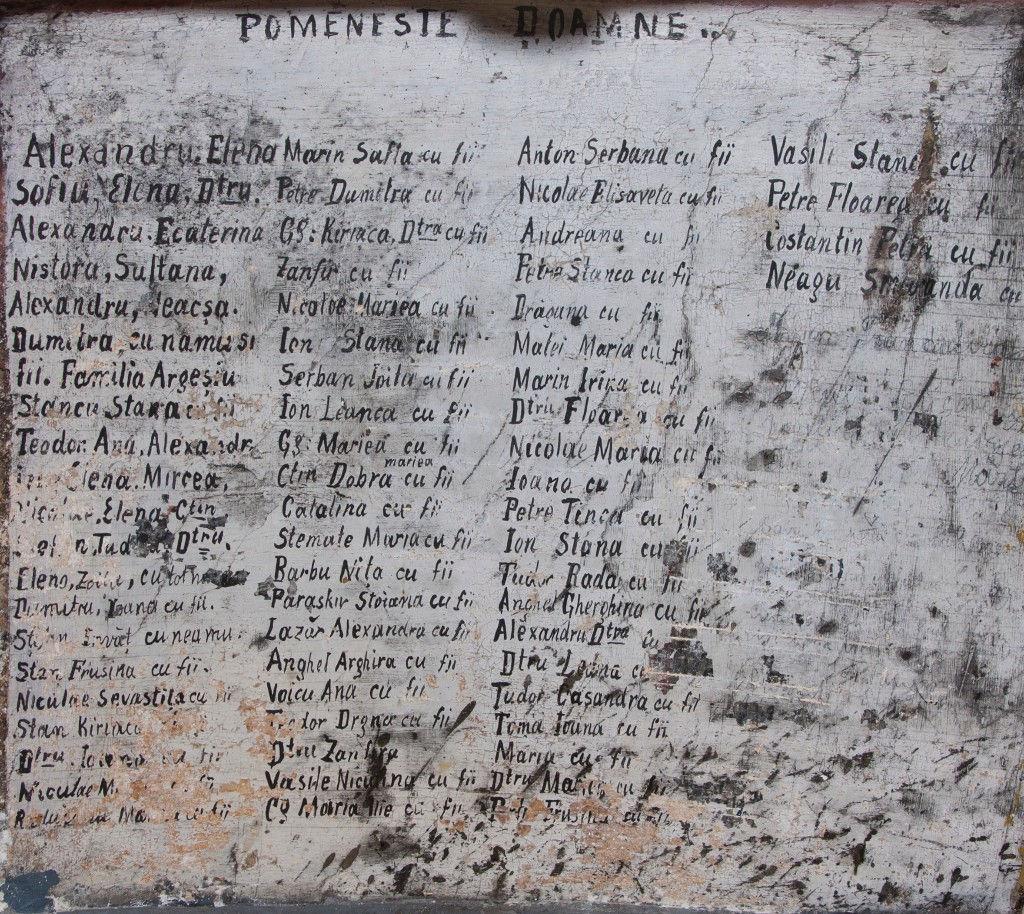 POMENESTE DOAMNE..
Alexandru. Elena
Sofiu, Elena, Dtru.
Alexandru. Ecaterina
Nistoru, Sultana,
Alexandru, Neacșa.
Dumitra, cu namu si
fii. Familia Argeșiu
Stancu Stana cu fii
Teodor. Ana, Alexandr
Elena. Mircea,
Nicolae. Elena Ctin
Tudor Dtru.
Eleno, cu tot
Dumitru, Ioana cu fii.
cu neamu.
Stan Frusina cu fii.
Niculae Sevastita cu fii
Stan Kiriaca
Dtru. fii
Niculae M.
fii
Marin Safta cu fii
Petre Dumitra cu fii
Gg: Kiriaca, Dtra cu fii
Zanfir cu fii
Nicoloe Mariea cu fii
Ion Stana cu fii
Serban Joita cu fii
Ion Leanca cu fii
Gg: Mariea cu fii
Ctin Dobra mariea cu fii
Catalina cu fii
Stemate Maria cu fii
Barbu Nita cu fii
Paraskiv Stoiana cu fii
Lazăr Alexandra cu fii
Anghel Arghira cu fii
Voicu Ana cu fii
Teodor Drgna cu fii
Dtru Zanfira
Vasile Niculina cu fii
Cg Maria Ilie cu fii
Anton Serbana cu fii
Nicolae Elisaveta cu fii
Andreana cu fii
Petre Stanca cu fii
Drăguna cu fii
Matei Maria cu fii
Marin Irina cu fii
Dtru Floarea cu fii
Nicolae Maria cu fii
Ioana cu fii
Petre Tinca cu fii
Ion Stana cu fii
Tudor Rada cu fii
Anghel Gherghina cu fii
Alexandru Dtra cu
Dtru Ioana cu
Tudor Casandra cu fii
Toma Ioana cu fii
Maria cu fii
Dtru Maria cu fii
Frusina cu fii
Vasili Stanca cu fii
Petre Floarea cu fii
Costantin Petra cu fii
Neagu Smaranda cu